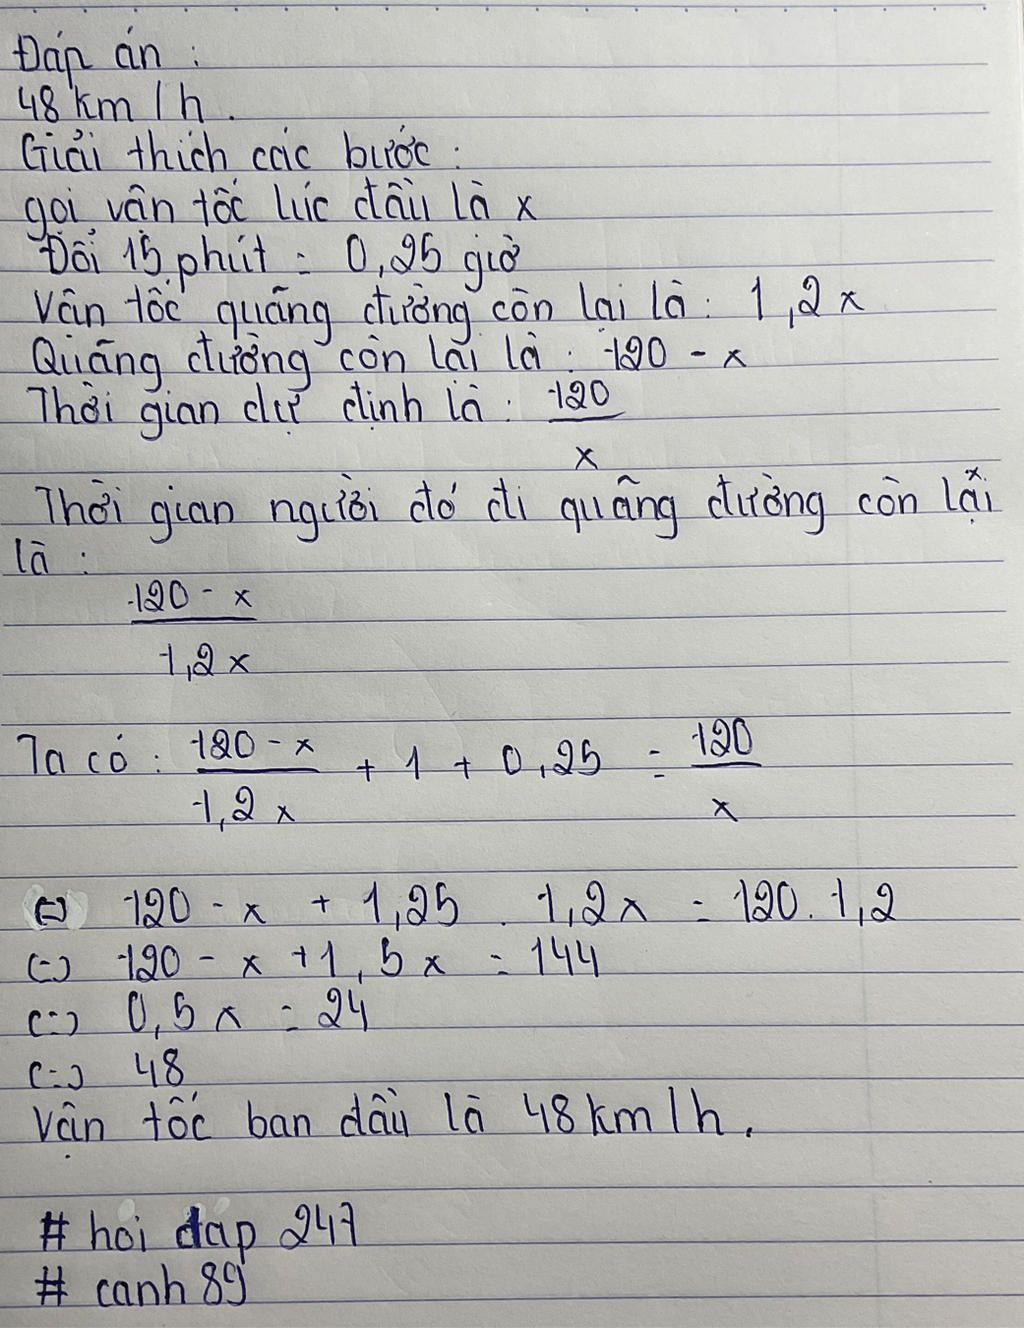 Đáp án :
48 km/h.
Giải thích các bước :
gọi vân tốc lúc đầu là x
Đổi 15 phút = 0,25 giờ
Vân tốc quãng đường còn lại là : 1,2x
Quãng đường còn lại là : 120 - x
Thời gian dự định là : 120
x
Thời gian người đó đi quãng đường còn lại
là :
120 - x
1,2x
Ta có : 120 - x + 1 + 0,25 = 120
1,2x x
(=) 120 - x + 1,25 . 1,2x = 120. 1,2
(=) 120 - x + 1,5x = 144
(=) 0,5x = 24
(=) 48
Vận tốc ban đầu là 48 km/h.
# hoi dap 247
# canh 89